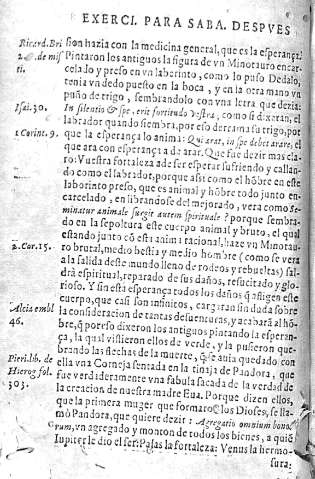 EXERCI. PARA SABA. DESPVES
Ricard. Bri sion hazia con la medicina general, que es la esperança.
2. de mis Pintaron los antiguos la figura de vn Minotauro encar
ti celado y preso en vn laberinto, como lo puso Dedalo,
tenia vn dedo puesto en la boca, y en la otra mano vn
puño de trigo, sembrandolo con vna letra que dezia:
Isai. 30. In silentio & spe, erit fortitudo vestra, como si dixeran, el
labrador quando siembra, por eso derrama su trigo, por
1 Corint. 9. que la esperança lo anima: Qui arat, in spe debet arare, el
que ara con esperança de arar. Que fue dezir mas cla-
ro: Vuestra fortaleza a de ser esperar sufriendo y callan-
do como el labrador, porque asi como el hõbre en este
laborinto preso, que es animal y hõbre todo junto en-
carcelado, en librandose del mejorado, vera como Se-
minatur animale surgit autem spirituale? porque sembra-
do en la sepoltura este cuerpo animal y bruto, el qual
estando junto cõ esta anima racional, haze vn Minotau-
2. Cor. 15. ro brutal, medio bestia y medio hombre (como se vera
a la salida deste mundo lleno de rodeos y rebueltas) sal-
drà espiritual, reparado de sus daños, resucitado y glo-
rioso. Y sin esta esperança todos los daños q̃ afligen este
cuerpo, que casi son infinitos, cargaràn sin duda sobre
Alcia embl la consideracion de tantas desuenturas, y acabarà al hõ-
46. bre, q̃ por eso dixeron los antiguos pintando la esperan-
ça, la qual vistieron ellos de verde, y la pusieron que-
brando las flechas de la muerte, q̃ se auia quedado con
Pieri. lib. de ella vna Corneja sentada en la tinaja de Pandora, que
Hierog. fol fue verdaderamente vna fabula sacada de la verdad de
303. la creacion de nuestra madre Eua. Porque dizen ellos,
que la primera muger que formarõ los Dioses, se lla-
mò Pandora, que quiere dezir: Agregatio omnium bono-
rum, vn agregado y monton de todos los bienes, a quiẽ
Iupiter le dio el ser: Palas la fortaleza: Venus la hermo-
sura: